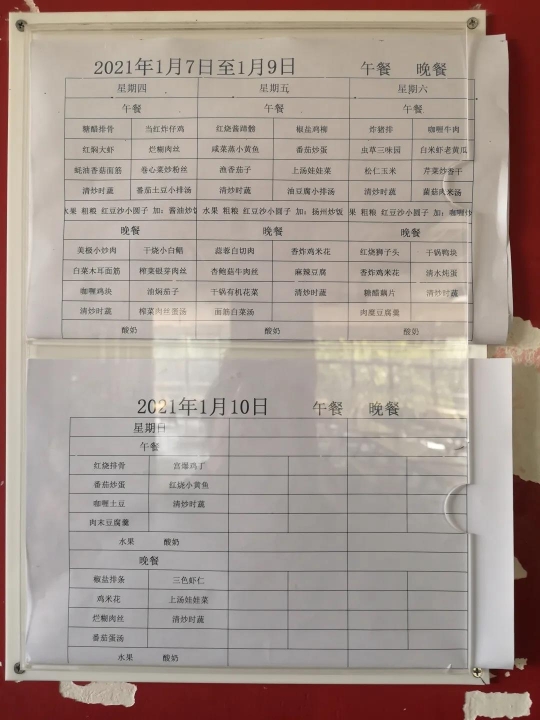 2021年1月7日至1月9日 午餐 晚餐
星期四 星期五 星期六
午餐 午餐 午餐
糖醋排骨 当红炸仔鸡 红烧酱蹄髈 椒盐鸡柳 炸猪排 咖喱牛肉
红焖大虾 烂糊肉丝 咸菜蒸小黄鱼 番茄炒蛋 虫草三味园 白米虾老黄瓜
蚝油香菇面筋 卷心菜炒粉丝 渔香茄子 上汤娃娃菜 松仁玉米 芹菜炒香干
清炒时蔬 番茄土豆小排汤 清炒时蔬 油豆腐小排汤 清炒时蔬 菌菇肉米汤
水果 粗粮 红豆沙小圆子 加：酱油炒饭 水果 粗粮 红豆沙小圆子 加：扬州炒饭 果 粗粮 红豆沙小圆子 加：咖喱炒
晚餐 晚餐 晚餐
美极小炒肉 干烧小白鲳 蒜蓉白切肉 香炸鸡米花 红烧狮子头 干锅鸭块
白菜木耳面筋 榨菜银芽肉丝 杏鲍菇牛肉丝 麻辣豆腐 香炸鸡米花 清水炖蛋
咖喱鸡块 油焖茄子 干锅有机花菜 清炒时蔬 糖醋藕片 清炒时蔬
清炒时蔬 榨菜肉丝蛋汤 面筋白菜汤 肉糜豆腐羹
酸奶 酸奶 酸奶
2021年1月10日 午餐 晚餐
星期日
午餐
红烧排骨 宫爆鸡丁
番茄炒蛋 红烧小黄鱼
咖喱土豆 清炒时蔬
肉末豆腐羹
水果 酸奶
晚餐
椒盐排条 三色虾仁
鸡米花 上汤娃娃菜
烂糊肉丝 清炒时蔬
番茄蛋汤
水果 酸奶